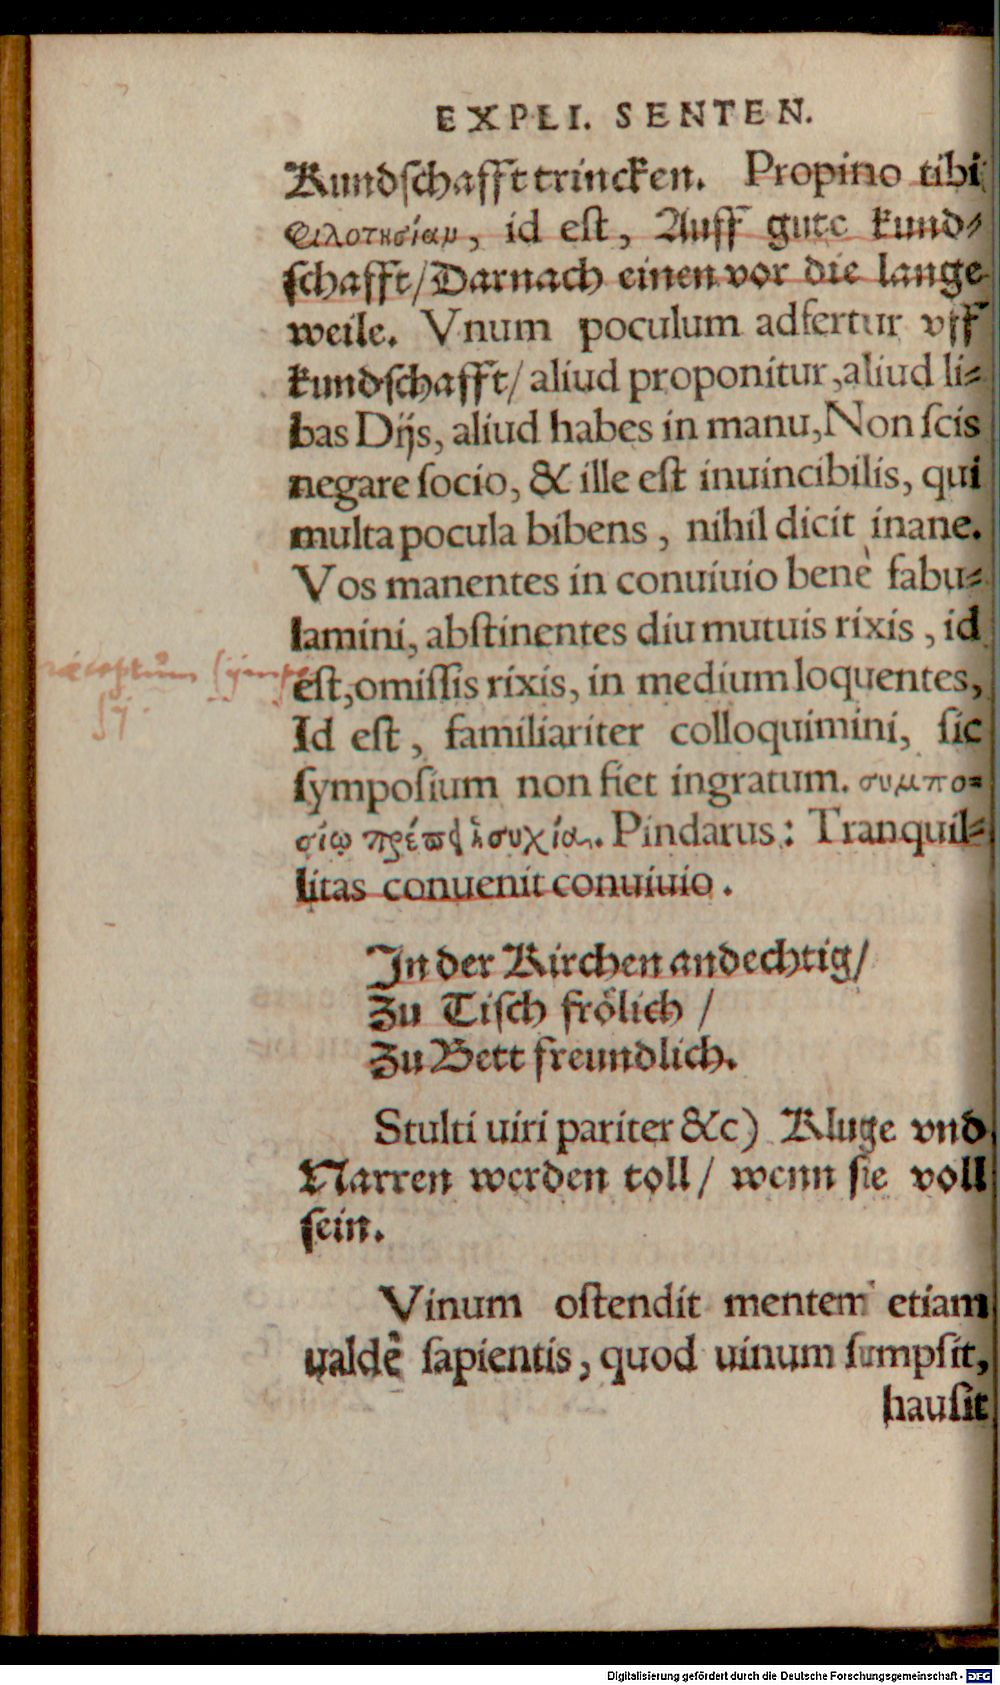 EXPLI. SENTEN.
Kundschafft trincken. Propino tibi
φιλοτησίαμ, id eſt, Auff gute kund⸗
ſchafft/Darnach einen vor die lange
weile. Vnum poculum adfertur vff
kundſchafft/ aliud proponitur, aliud li⸗
bas Dijs, aliud habes in manu, Non ſcis
negare ſocio, & ille eſt inuincibilis, qui
multa pocula bibens, nihil dicit inane.
Vos manentes in conuiuio benè fabu⸗
lamini, abſtinentes diu mutuis rixis, id
eſt, omiſſis rixis, in medium loquentes,
Id eſt, familiariter colloquimini, ſic
ſympoſium non fiet ingratum. συμπο⸗
σίῳ πρέπει ἡσυχία. Pindarus: Tranquil⸗
litas conuenit conuiuio.
In der Kirchen andechtig/
Zu Tiſch frölich /
Zu Bett freundlich.
Stulti uiri pariter &c) Kluge vnd
Narren werden toll/ wenn ſie voll
ſein.
Vinum oſtendit mentem etiam
ualdè ſapientis, quod uinum ſumpſit,
hauſit
Digitalisierung gefördert durch die Deutsche Forschungsgemeinschaft - DFG